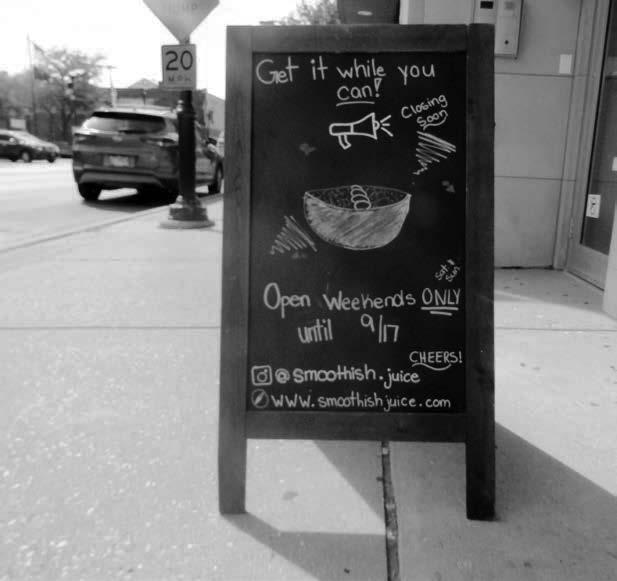 20
M.P.H.
Get it while you
can!
Closing
Soon
Sat &
Sun
Open Weekends ONLY
until 9/17
CHEERS!
@smoothish.juice
www.smoothishjuice.com